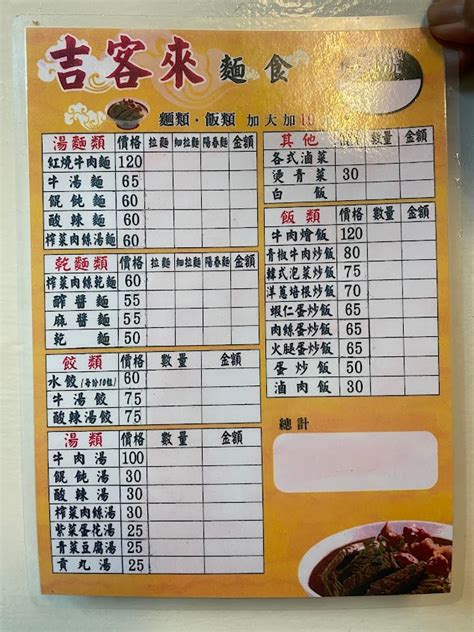 吉客來 麵食
麵類·飯類 加大加10
湯麵類 價格 拉麵 細拉麵 陽春麵 金額
紅燒牛肉麵 120
牛湯麵 65
餛飩麵 60
酸辣麵 60
榨菜肉絲湯麵 60
乾麵類 價格 拉麵 細拉麵 陽春麵 金額
榨菜肉絲乾麵 60
醡醬麵 55
麻醬麵 55
乾麵 50
餃類 價格 數量 金額
水餃(每份10粒) 60
牛湯餃 75
酸辣湯餃 75
湯類 價格 數量 金額
牛肉湯 100
餛飩湯 30
酸辣湯 30
榨菜肉絲湯 30
紫菜蛋花湯 25
青菜豆腐湯 25
貢丸湯 25
其他 價格 數量 金額
各式滷菜
燙青菜 30
白飯
飯類 價格 數量 金額
牛肉燴飯 120
青椒牛肉炒飯 80
韓式泡菜炒飯 75
洋蔥培根炒飯 70
蝦仁蛋炒飯 65
肉絲蛋炒飯 65
火腿蛋炒飯 65
蛋炒飯 50
滷肉飯 30
總計